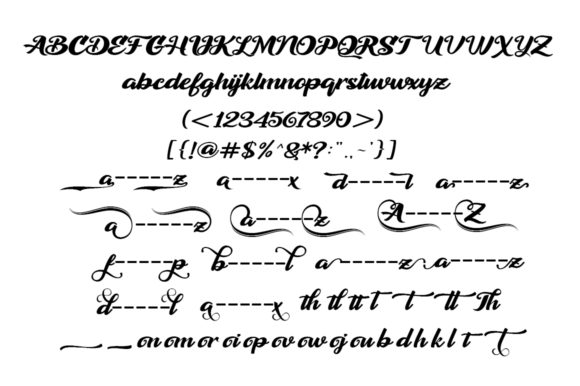 ABCDEFGHIJKLMNOPQRSTUVWXYZ
abcdefghijklmnopqrstuvwxyz
(<1234567890>)
[{!@#$%^&*?:".,~'}]
a------z a------x d-----l a------z
a------z a-----z A-----Z
f-----p b-----l a------z a------z
d-----l a------x th tl tt t t t tt Th
on om or oi op ov ow oj ou b d h k l t t